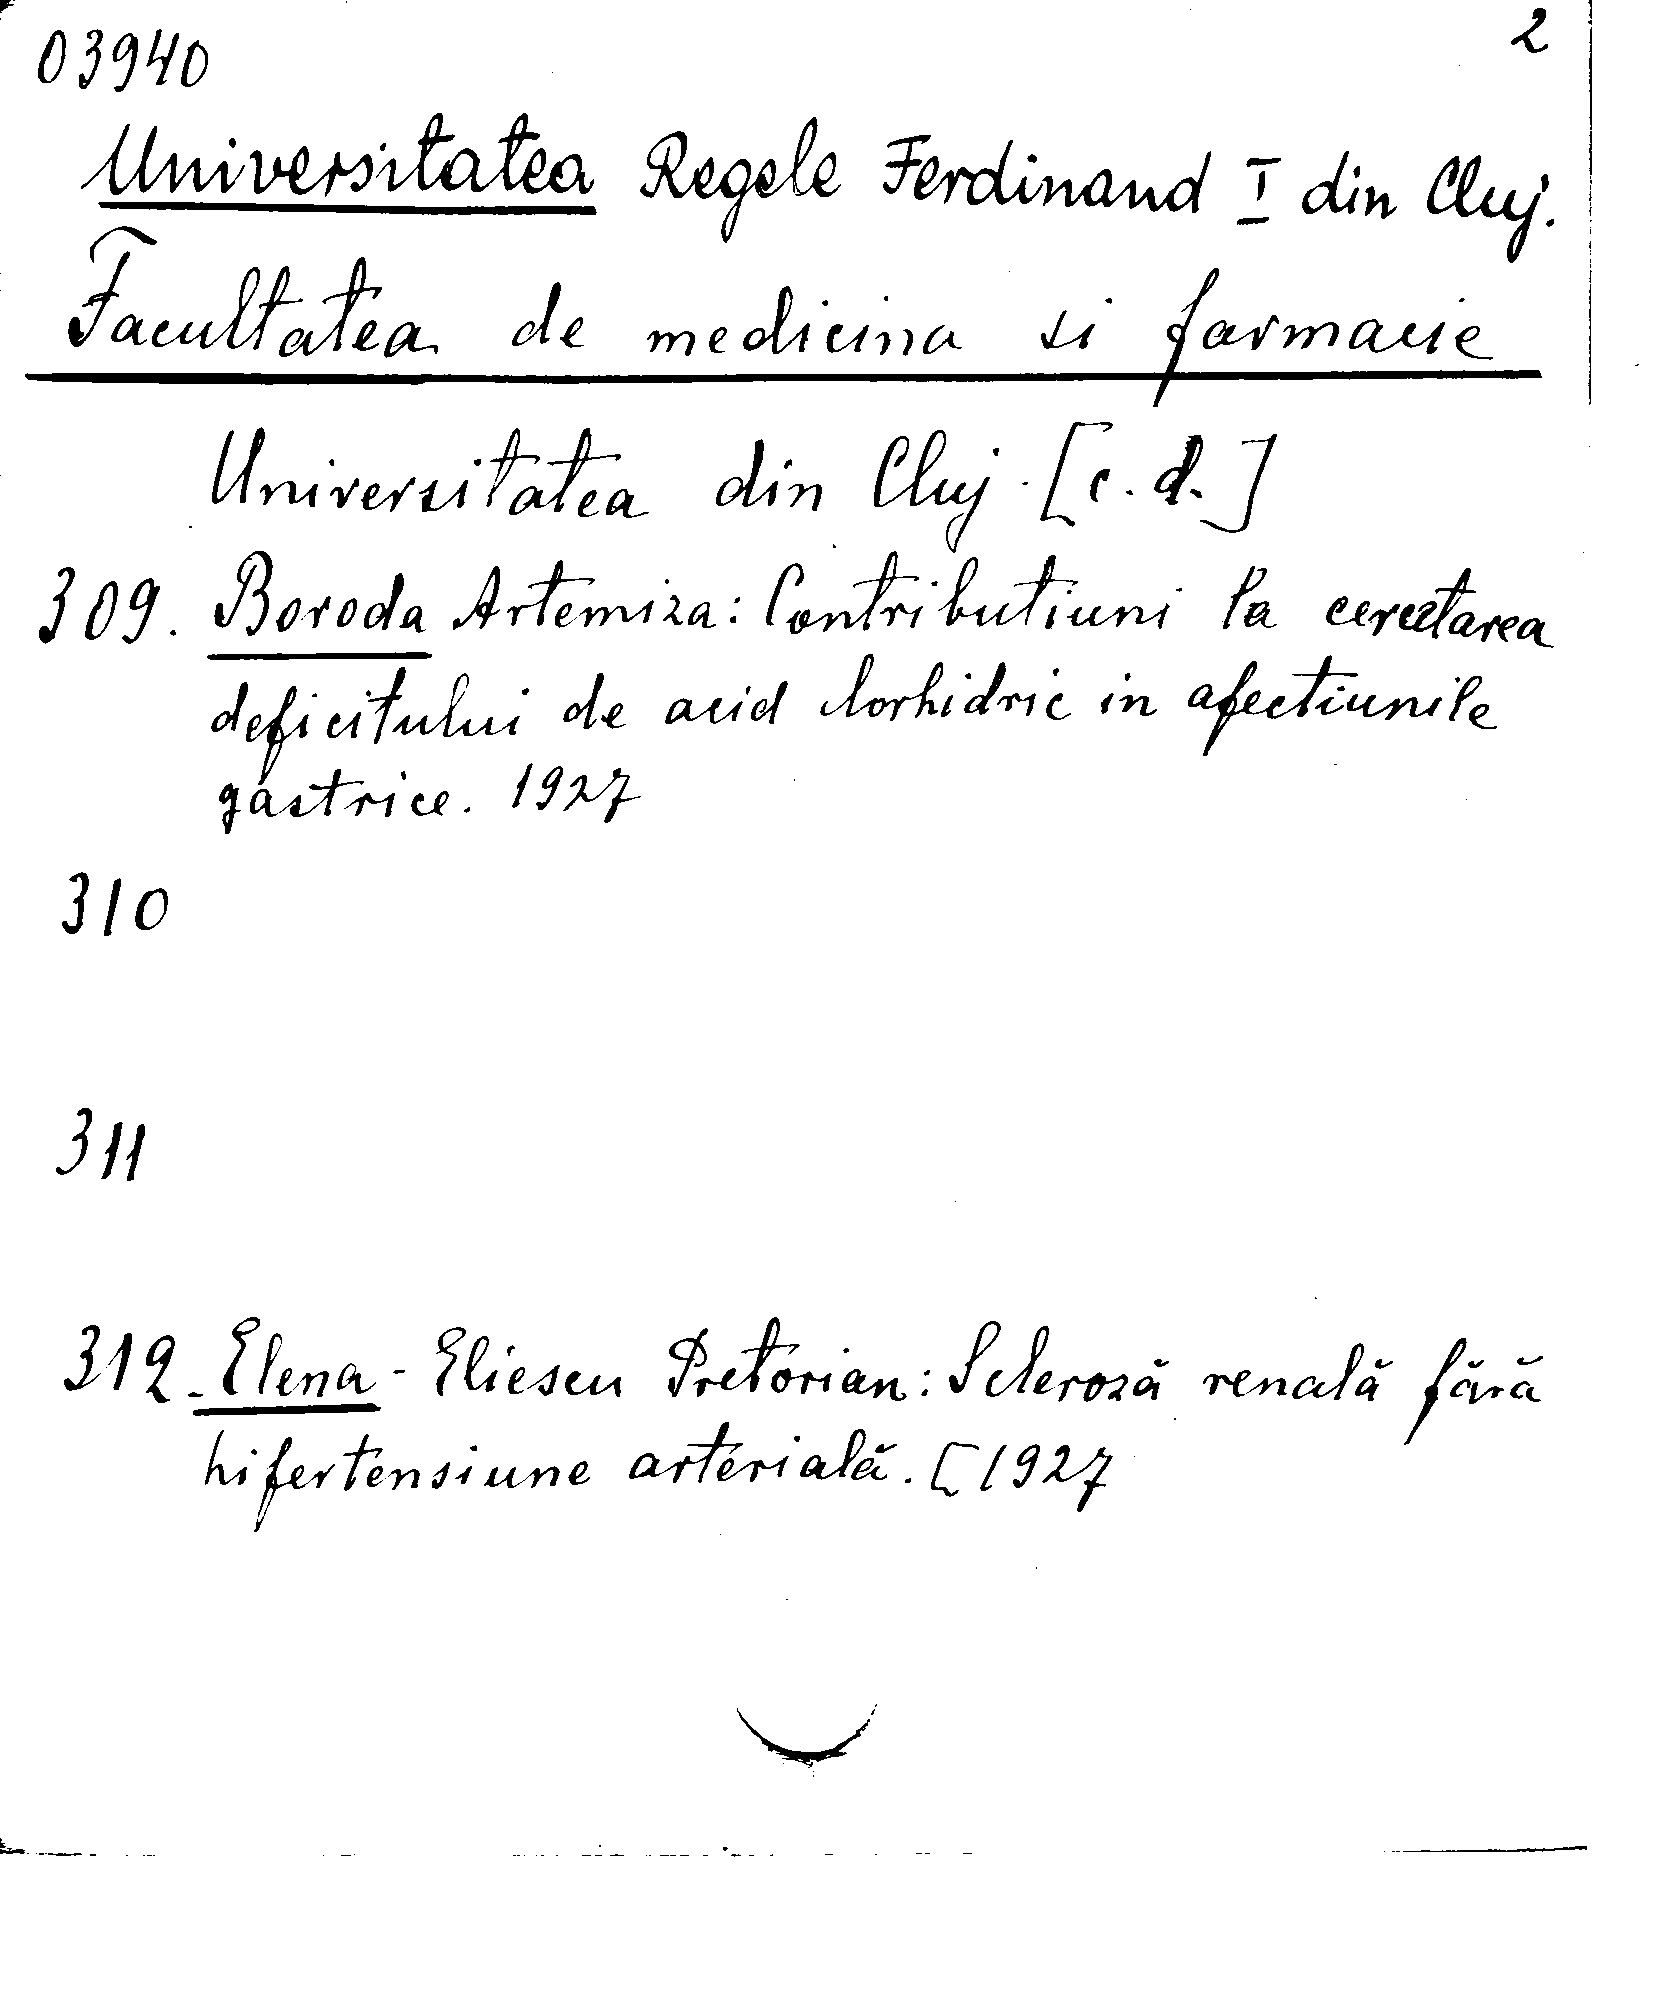 03940
2
Universitatea Regele Ferdinand I din Cluj.
Facultatea de medicina si farmacie
Universitatea din Cluj. [c. d.]
309. Boroda Artemiza: Contributiuni la cercetarea
deficitului de acid clorhidric in afectiunile
gastrice. 1927
310
311
312. Elena - Eliescu Pretorian: Scleroză renală fără
hifertensiune arterială. [1927